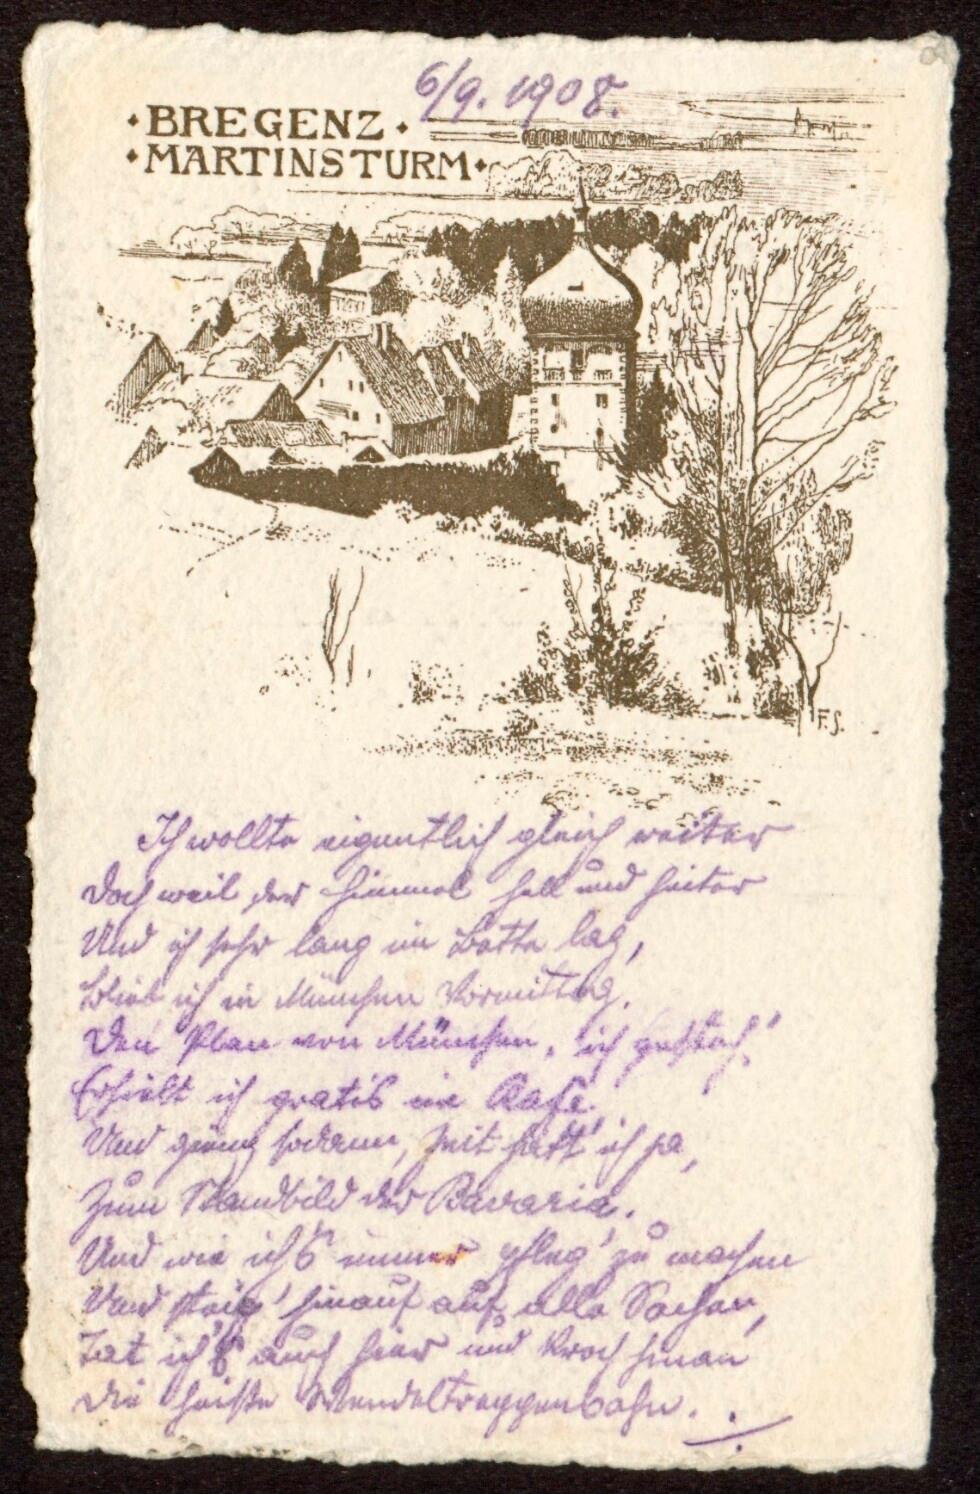 6/9. 1908.
BREGENZ
MARTINSTURM
F.S.
Ich wollte eigentlich gleich weiter
Doch weil der Himmel hell und heiter
Und ich sehr lang im Bette lag,
Blieb ich in München Vormittag.
Den Plan von München, ich gesteh'
Erhielt ich gratis im Kafe.
Und gieng sodann, Zeit hatt' ich ja,
Zum Standbild der Bavaria.
Und wie ich's immer pfleg' zu machen
Und steig' hinauf auf alle Sachen,
Tat ich's auch hier und kroch hinan
Die heiße Wendeltreppenbahn.